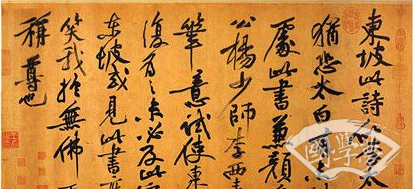 東坡此詩似李太
猶恐太白有
處此書兼顏
公楊少師李西
筆意試使東
復為之未必及此
東坡或見此書
笑我於無佛
稱尊也
國學